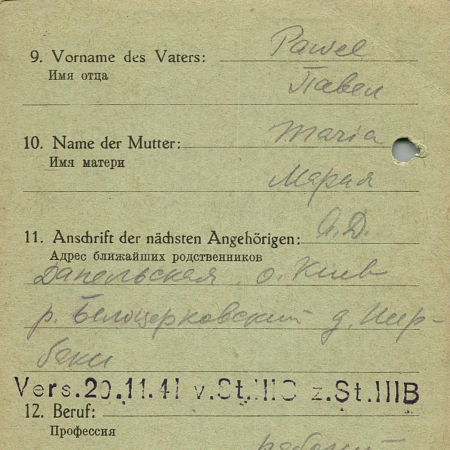 9. Vorname des Vaters: Pawel
Имя отца
Павел
10. Name der Mutter: Maria
Имя матери
Мария
11. Anschrift der nächsten Angehörigen: А.Д.
Адрес ближайших родственников
о. Киев
р. Белоцерковский д. Пир-
Vers. 20.11.41 v.St.IIC z.St.IIIB
12. Beruf:
Профессия
рабочий